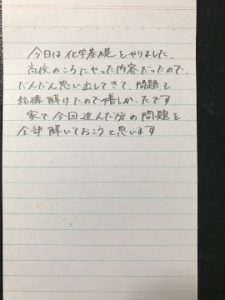 今日は化学基礎をやりました。
高校のころにやった内容だったので
だんだん思い出してきて、問題も
結構解けたので嬉しかったです
家で今回進んだ分の問題を
全部解いておこうと思います